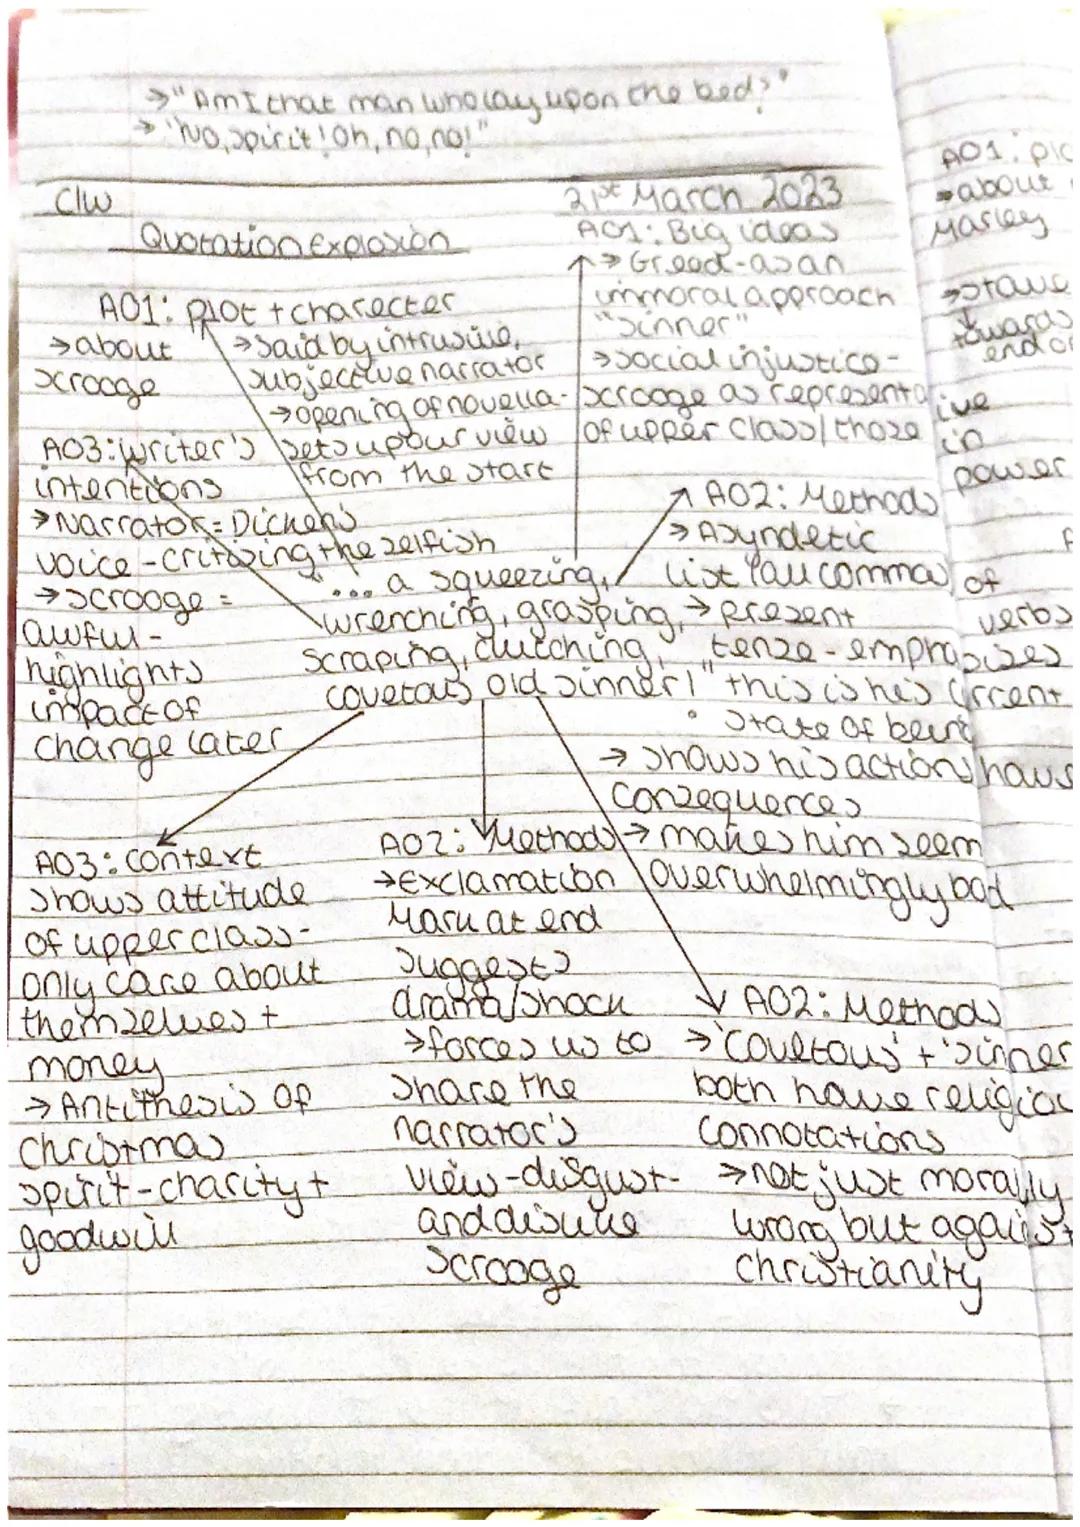 →"Am I that man who lay upon the bed?"
→ "No, spirit! Oh, no, no!"
C/W
21st March 2023
Quotation Explosion
AO1: Big ideas
→ Greed - as an
immoral approach
"sinner"
→ social injustice -
scrooge as representative
of upper class/those in
power
AO1: plot + charecter
→ about
scrooge
→ said by intrusive,
subjective narrator
→ opening of novella -
sets up our view
from the start
AO3: writer's
intentions
→ Narrator = Dickens
voice - critising the selfish
→ scrooge =
awful -
highlights
impact of
change later
AO2: Methods
→ Asyndetic
list (all commas) of
verbs
→ present
tense - emphasises
this is his current
state of being
→ shows his actions have
consequences
→ makes him seem
overwhelmingly bad
"... a squeezing,
wrenching, grasping,
scraping, clutching,
covetous old sinner!"
AO3: context
shows attitude
of upper class -
only care about
themselves +
money
→ Antithesis of
christmas
spirit - charity +
goodwill
AO2: Methods
→ Exclamation
Mark at end
suggests
drama/shock
→ forces us to
share the
narrator's
view - disgust
and dislike
scrooge
AO2: Methods
→ 'covetous' + 'sinner
both have religiou
connotations
→ not just morally
wrong but against
christianity
AO1: plo
→ about
Marley
→ stave
towards
end o